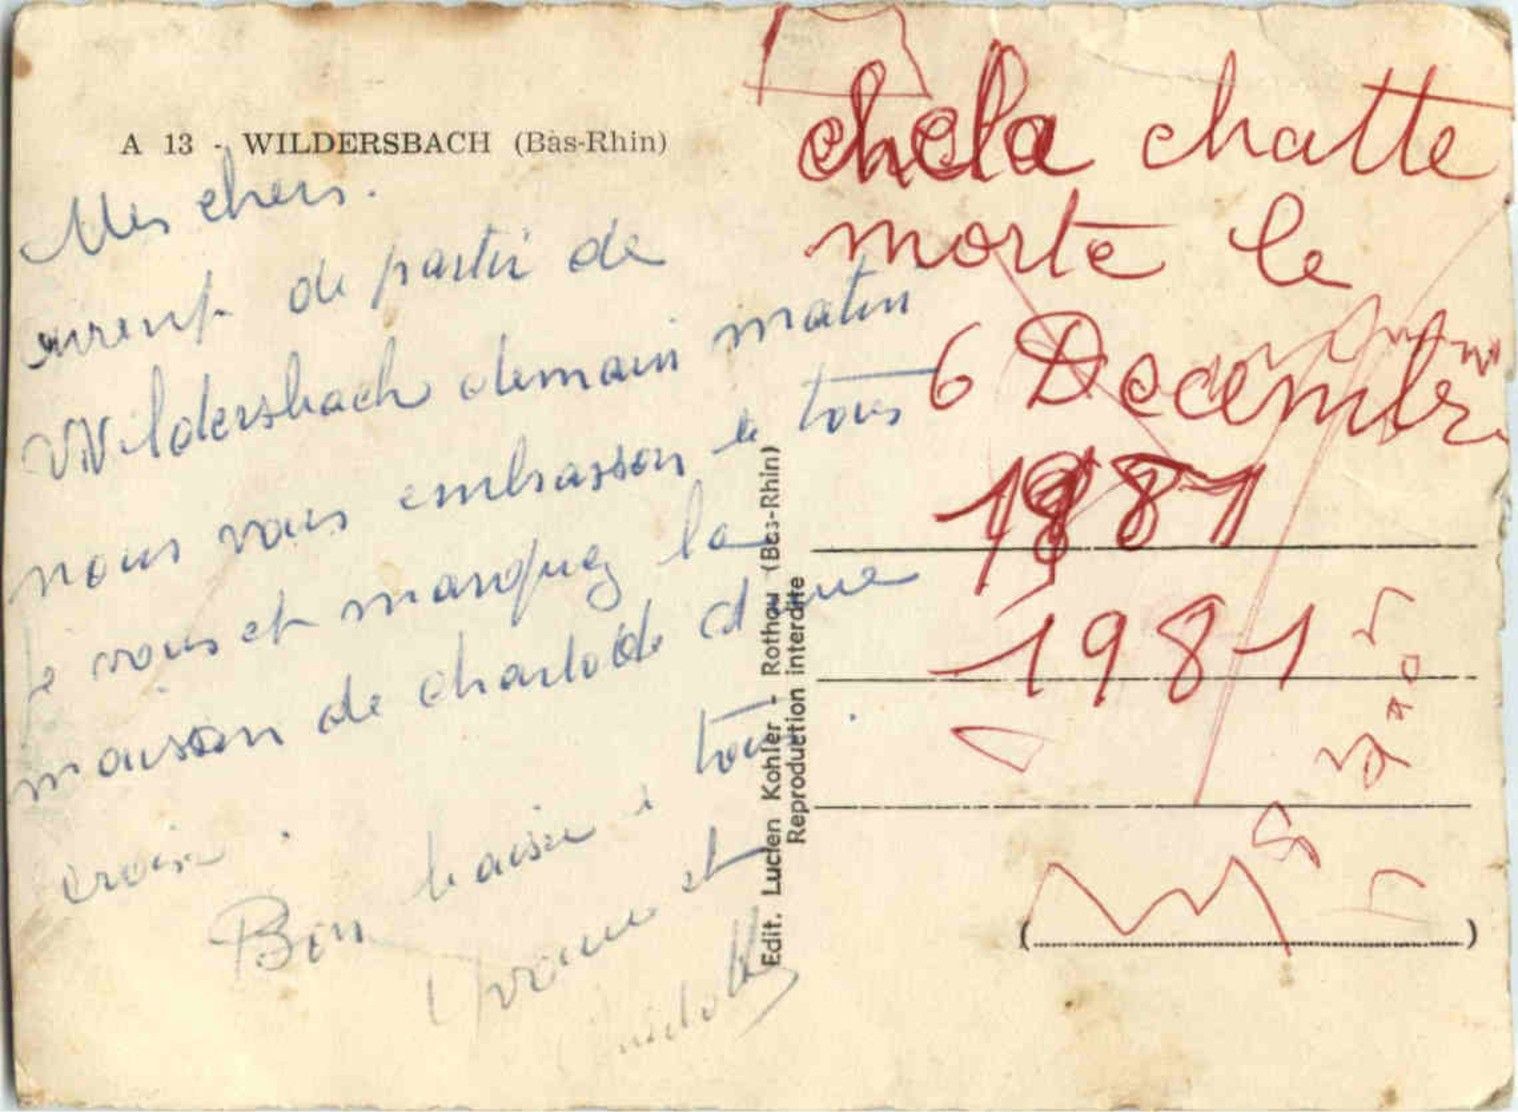 A 13 - WILDERSBACH (Bas-Rhin)
Mes chers.
de partir de
Wildersbach demain matin
nous vous embrasson tous
je vous et marquez la
maison de charlotte d une
croix.
Bon baiser à tous
Yvonne et
Edit. Lucien Kohler - Rothau (Bas-Rhin)
Reproduction interdite
chela chatte
morte le
6 Decembre
1981
1981
(                    )